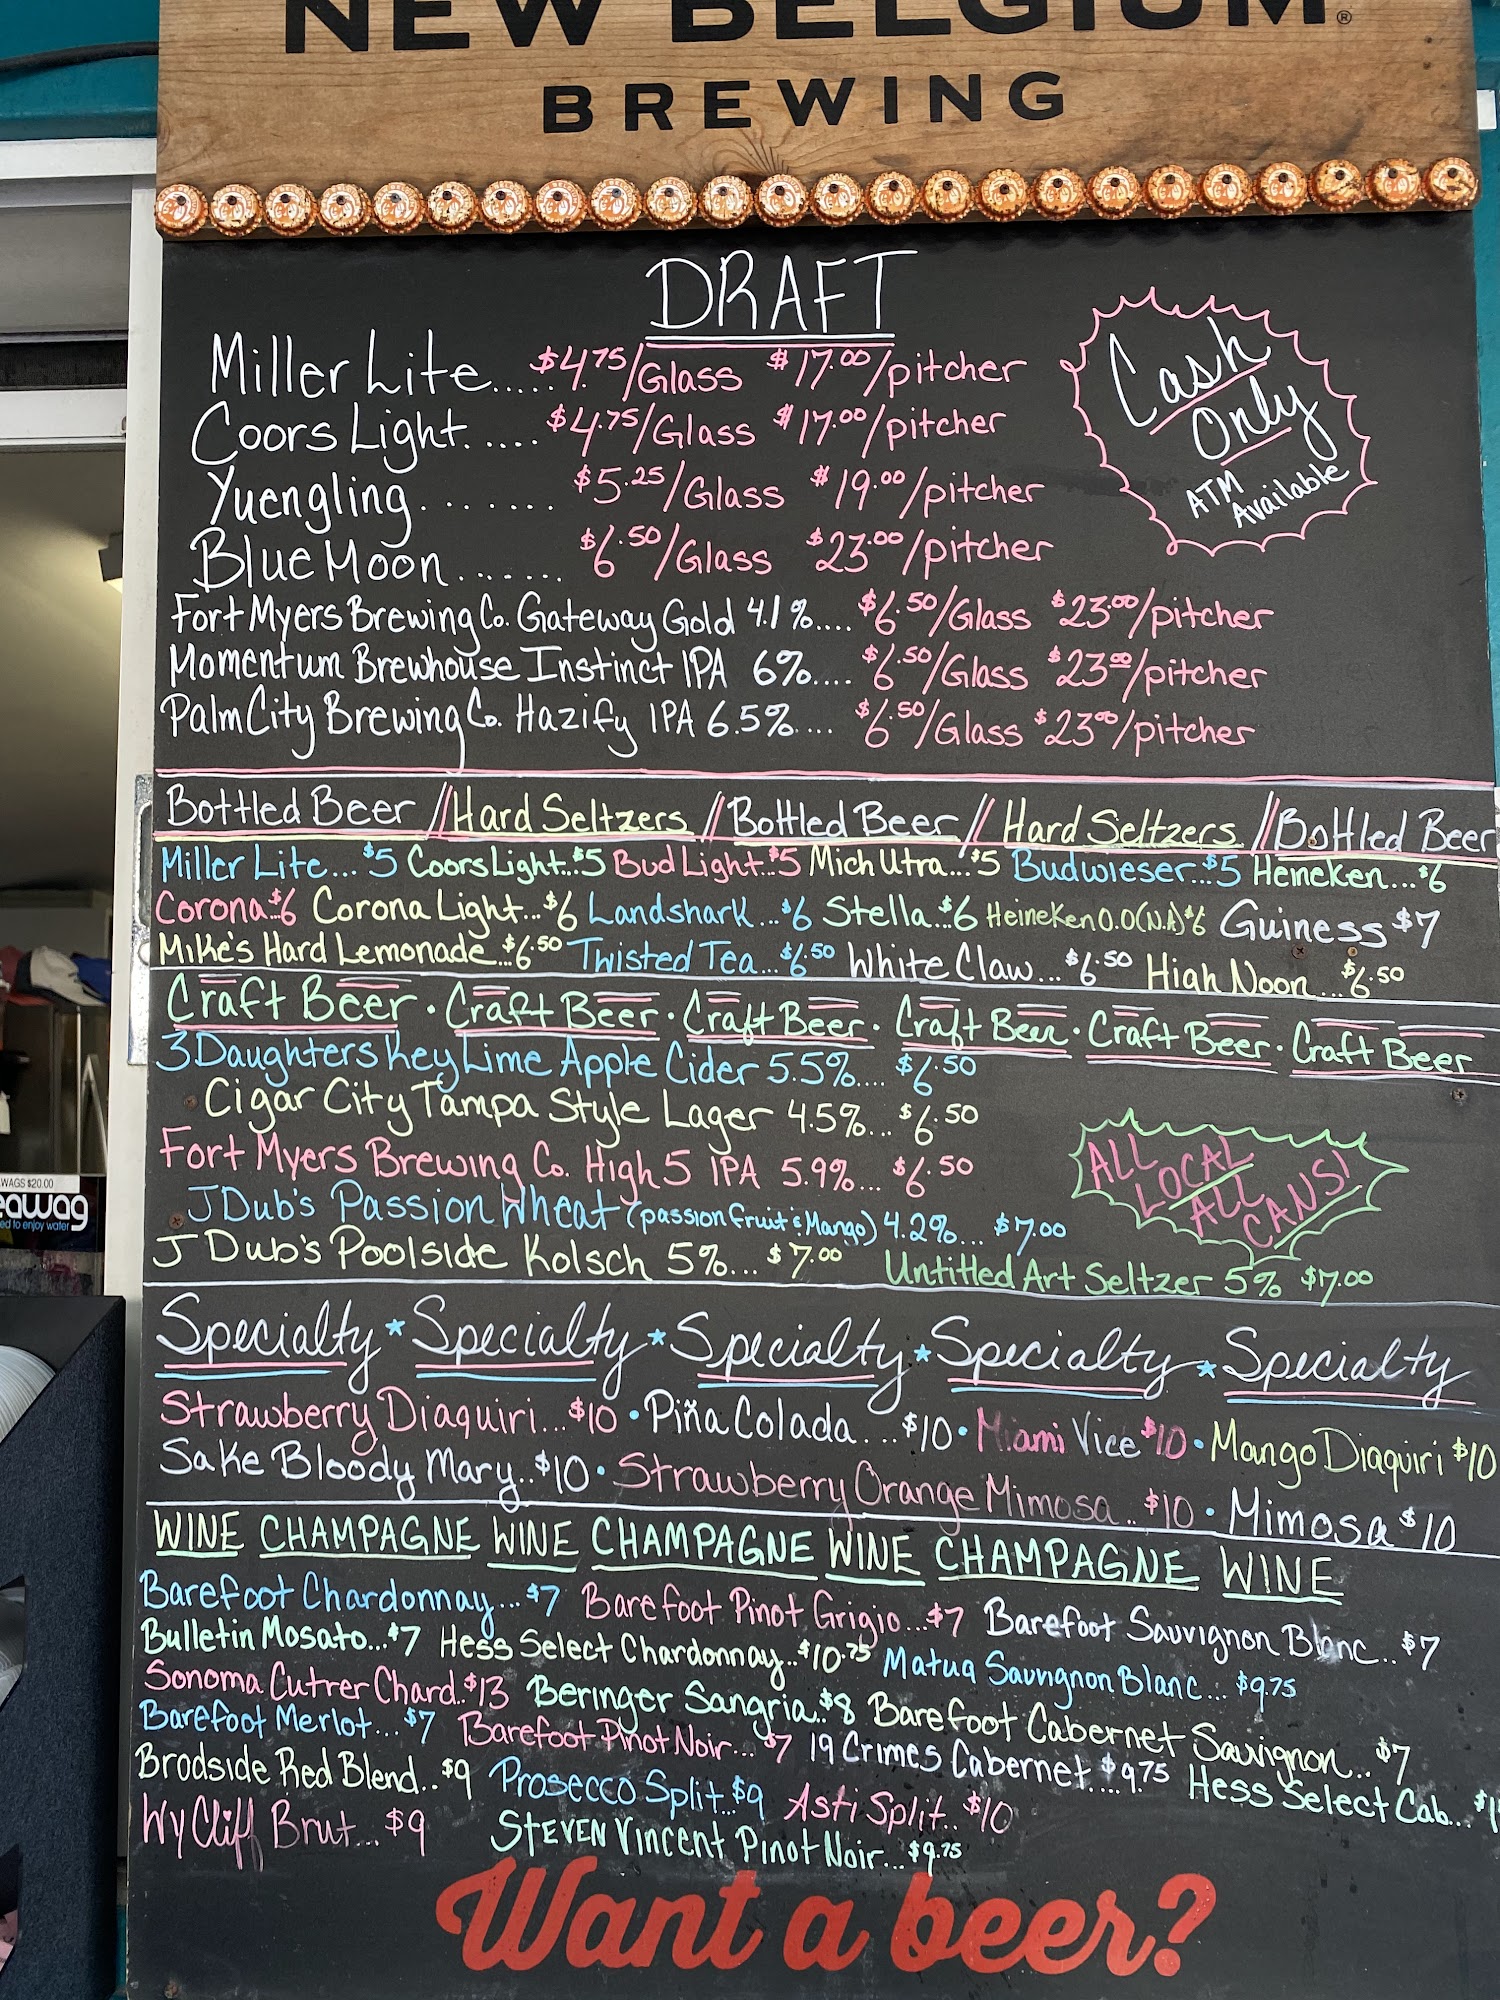 NEW BELGIUM®
BREWING
DRAFT
Miller Lite..... $4.75/Glass $17.00/pitcher
Coors Light..... $4.75/Glass $17.00/pitcher
Yuengling....... $5.25/Glass $19.00/pitcher
Blue Moon....... $6.50/Glass $23.00/pitcher
Cash
Only
ATM
Available
Fort Myers Brewing Co. Gateway Gold 4.1%.... $6.50/Glass $23.00/pitcher
Momentum Brewhouse Instinct IPA 6%.... $6.50/Glass $23.00/pitcher
Palm City Brewing Co. Hazify IPA 6.5%.... $6.50/Glass $23.00/pitcher
Bottled Beer // Hard Seltzers // Bottled Beer // Hard Seltzers // Bottled Beer
Miller Lite... $5 Coors Light...$5 Bud Light..$5 Mich Utra...$5 Budwieser...$5 Heineken...$6
Corona.$6 Corona Light...$6 Landshark...$6 Stella..$6 Heineken 0.0(N.A)$6 Guiness $7
Mike's Hard Lemonade...$6.50 Twisted Tea...$6.50 White Claw... $6.50 High Noon...$6.50
Craft Beer · Craft Beer · Craft Beer · Craft Beer · Craft Beer · Craft Beer
3 Daughters Key Lime Apple Cider 5.5%.... $6.50
Cigar City Tampa Style Lager 4.5%... $6.50
Fort Myers Brewing Co. High 5 IPA 5.9%... $6.50
JDub's Passion Wheat (passion fruit & Mango) 4.2%... $7.00
JDub's Poolside Kolsch 5%... $7.00 Untitled Art Seltzer 5% $7.00
ALL
LOCAL
ALL
CANS!
Specialty * Specialty * Specialty * Specialty * Specialty
Strawberry Diaquiri...$10 • Piña Colada...$10 • Miami Vice $10 • Mango Diaquiri $10
Sake Bloody Mary..$10 • Strawberry Orange Mimosa..$10 • Mimosa $10
WINE CHAMPAGNE WINE CHAMPAGNE WINE CHAMPAGNE WINE
Barefoot Chardonnay...$7 Barefoot Pinot Grigio...$7 Barefoot Sauvignon Blanc..$7
Bulletin Mosato...$7 Hess Select Chardonnay..$10.75 Matua Sauvignon Blanc... $9.75
Sonoma Cutrer Chard..$13 Beringer Sangria..$8 Barefoot Cabernet Sauvignon..$7
Barefoot Merlot...$7 Barefoot Pinot Noir...$7 19 Crimes Cabernet....$9.75 Hess Select Cab...
Brodside Red Blend..$9 Prosecco Split..$9 Asti Split..$10
WyCliff Brut...$9 STEVEN Vincent Pinot Noir...$9.75
Want a beer?
WAGS $20.00
eawag
ed to enjoy water